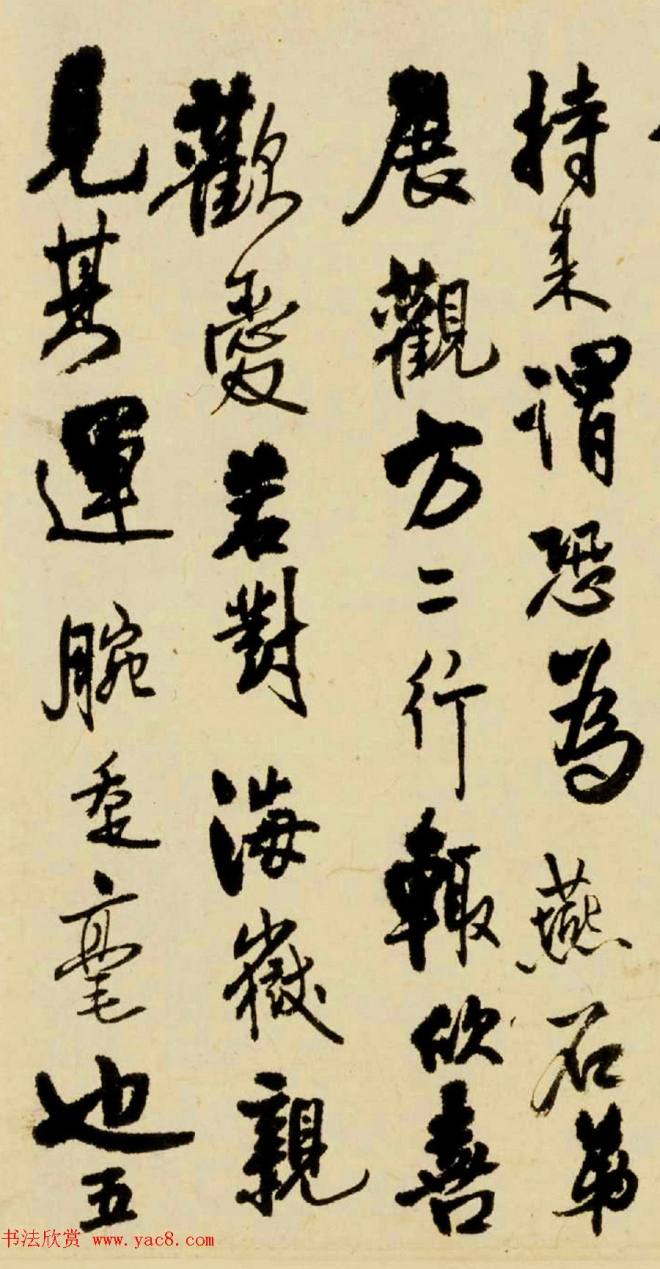 持来謂恐為燕石第
展觀方二行輙欣喜
歡愛若對海嶽親
見其運腕垂毫也五
书法欣赏 www.yac8.com